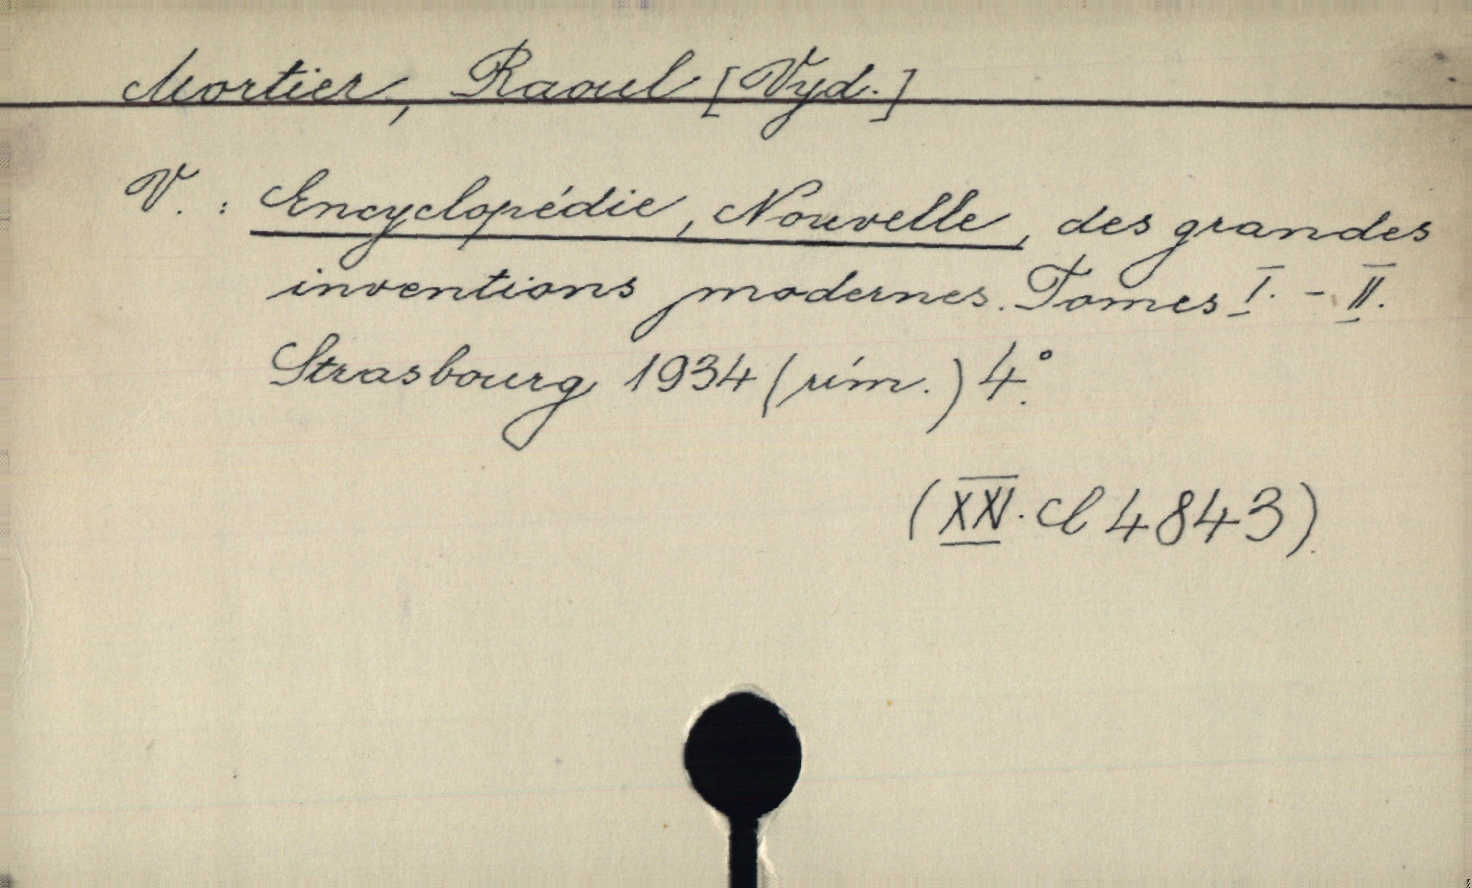 Mortier, Raoul [Vyd.]
V. : Encyclopédie, Nouvelle, des grandes
inventions modernes. Tomes I. - II.
Strasbourg 1934 (rím.) 4°.
(XXV. Cl 4843).